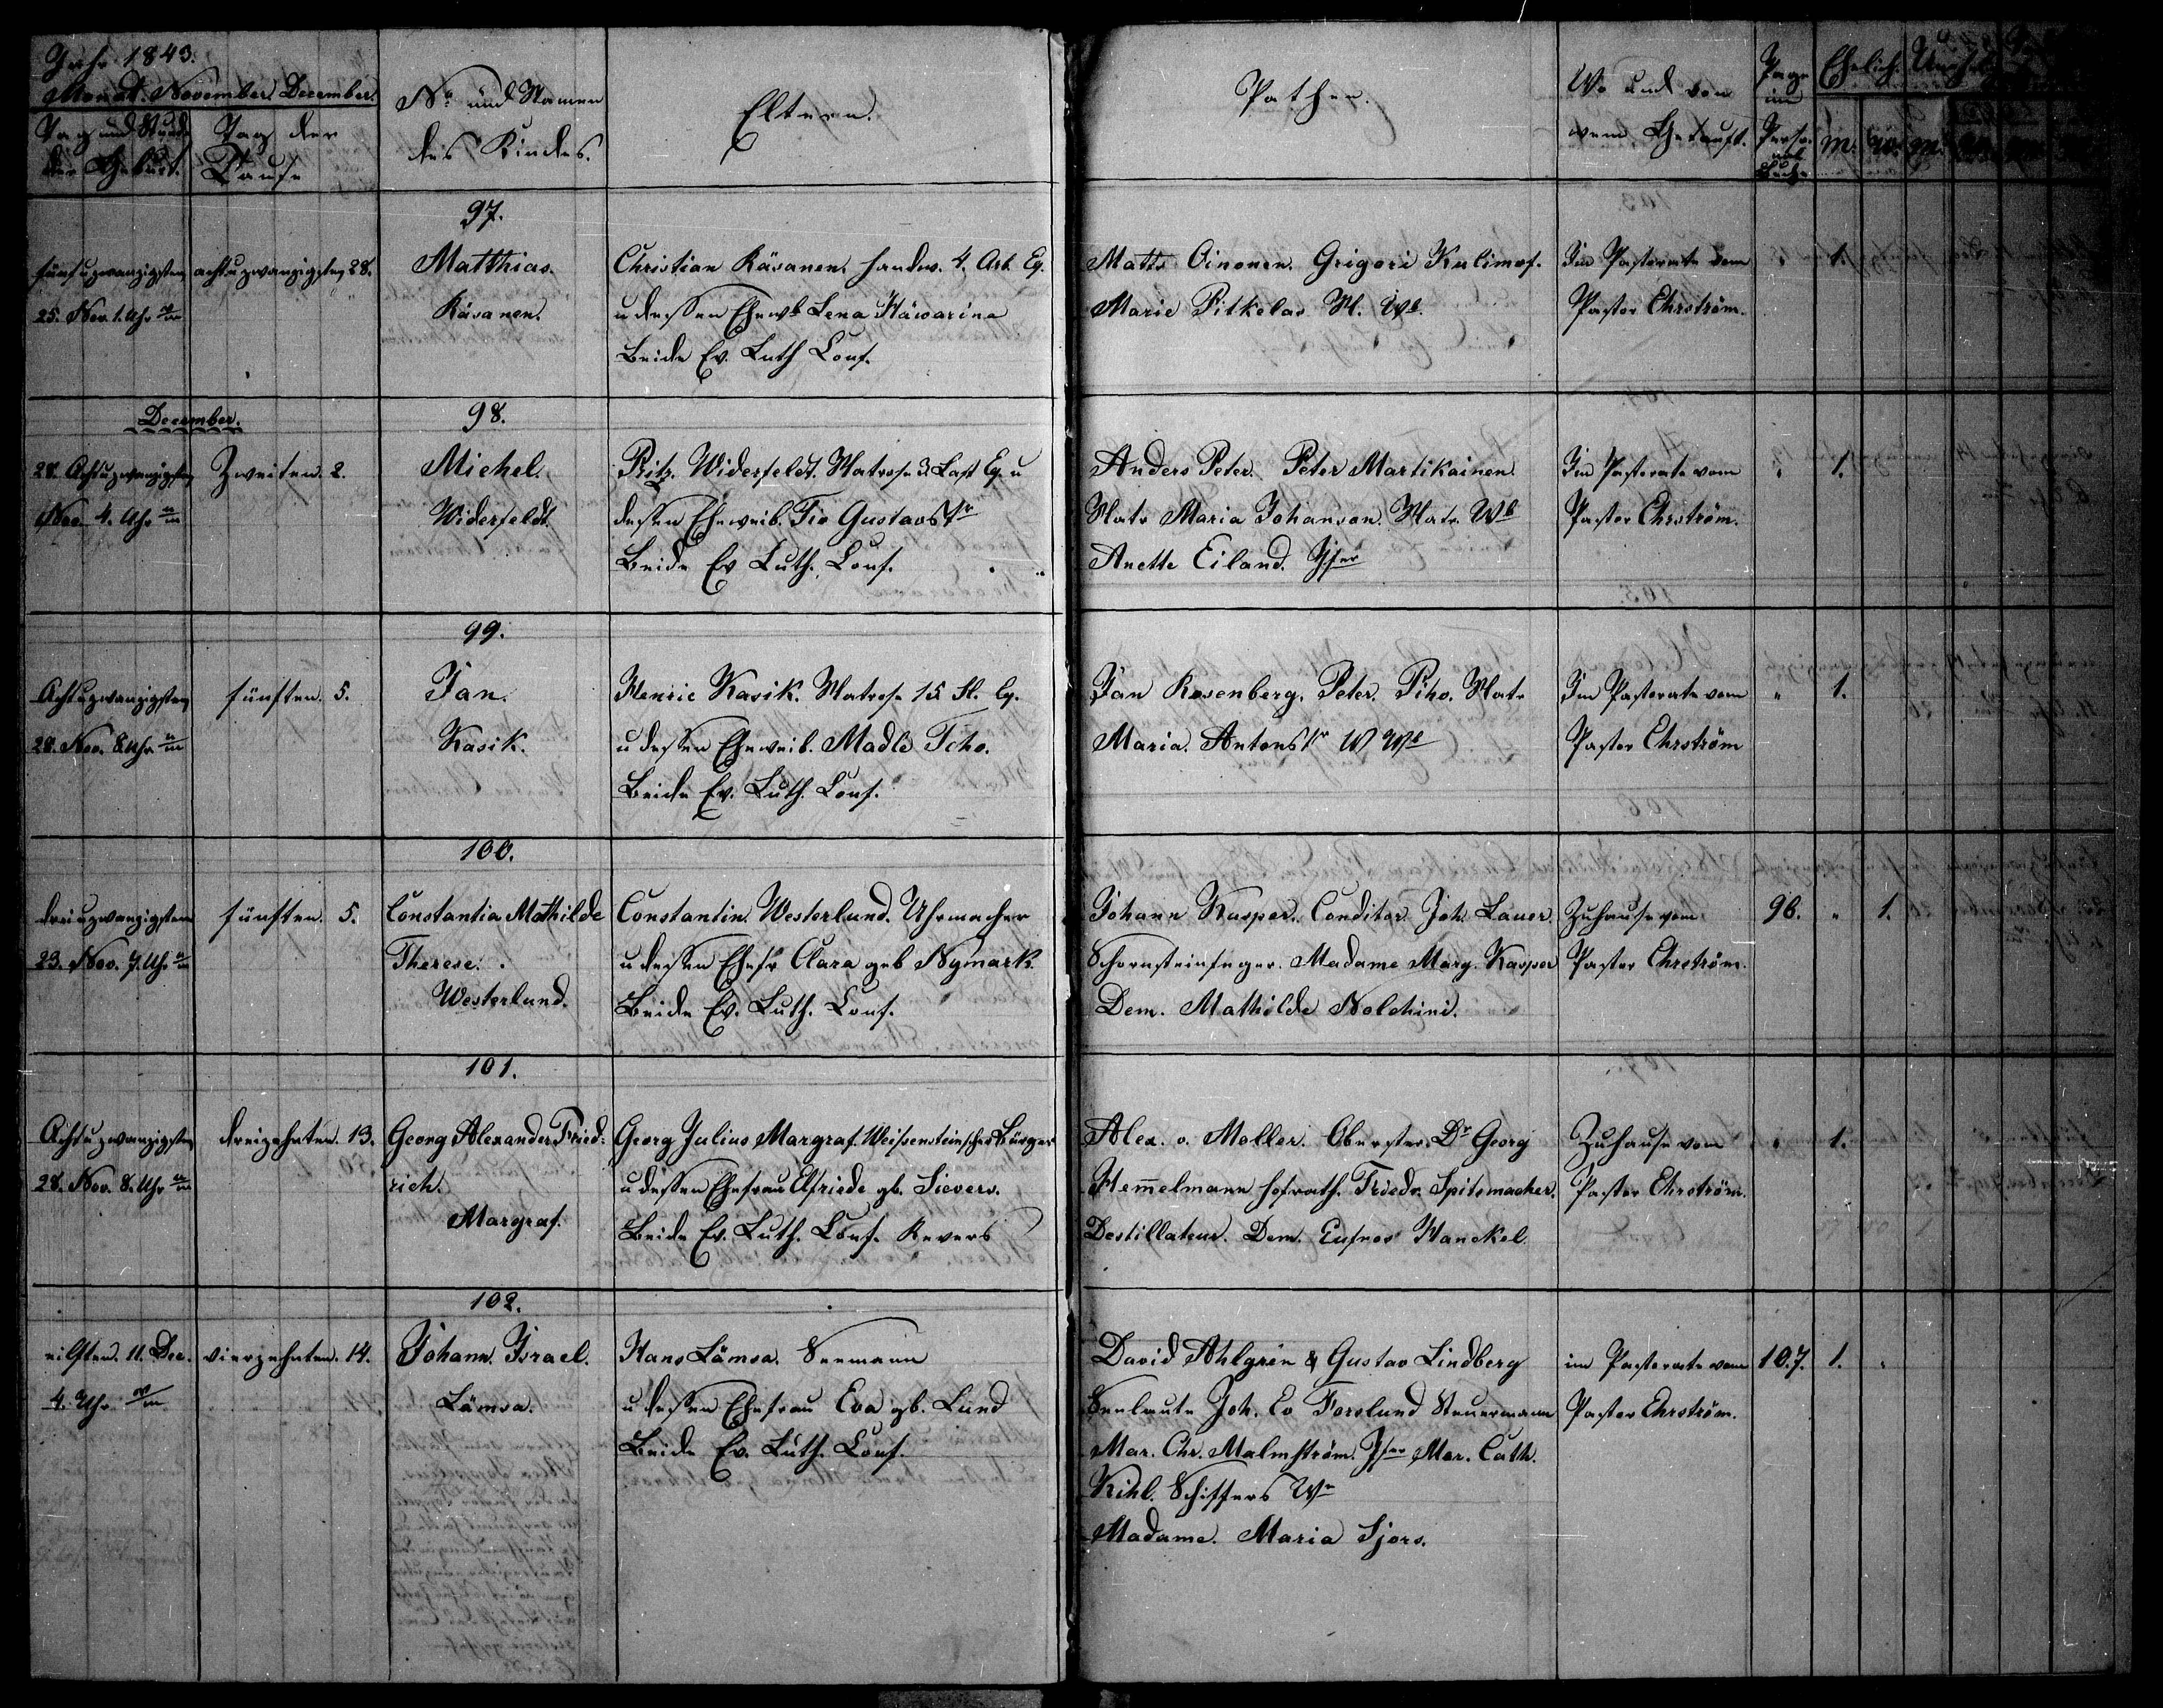 Jahr 1843.
Monat. November. December.
Tag und Stunde der Geburt.
Tag der Taufe
No und Namen des Kindes.
Eltern.
Pathen.
Wo und von wem Getauft.
Page im Perso-nal Buche
Ehelich.
m. w. m.
97.
fünfuzwanzigsten
25. Nov. 1. Uhr
achtuzwanzigsten 28.
Matthias.
Räsanen.
Christian Räsanen. Handw. 4. Arb. Eq.
u dessen Ehewb Lena Häwarina
Beide Ev. Luth Conf.
Matts Oinonen. Grigori Kulimof.
Marie Pitkelas M. Wb.
Im Pastorate vom
Pastor Ehrström.
1.
December.
98.
28. Achtuzwanzigsten
Nov. 4. Uhr
Zweiten. 2.
Michel.
Widerfeldt.
Fritz. Widerfeldt. Matrose 3 Last Eq. u
dessen Eheweib. Tio Gustavstr
Beide Ev Luth. Conf.
Anders Peter. Peter Martikainen.
Matr Maria Johanson. Matr. Wb
Anette Eiland. Jfer
Im Pastorate vom
Pastor Ehrström.
1.
99.
Achtuzwanzigsten
28. Nov. 8 Uhr
fünften. 5.
Jan.
Kasik.
Henric Kasik. Matrose 15 Fl. Eq.
u dessen Eheweib. Madle Tcho.
Beide Ev. Luth. Conf.
Jan Rosenberg. Peter. Piho. Matr
Maria. Antonstr Wb
Im Pastorate vom
Pastor Ehrström
" 1.
100.
dreiuzwanzigsten
23. Nov. 7. Uhr
fünften. 5.
Constantia Mathilde
Therese.
Westerlund.
Constantin. Westerlund. Uhrmacher
u dessen Ehefr Clara geb Nymark.
Beide Ev. Luth. Conf.
Johann Kasper. Conditor Joh. Lauer.
Schornsteinfeger. Madame Marg. Kasper
Dem. Mathilde Nolchini.
Zuhause vom
Pastor Ehrström.
96. " 1.
101.
Achtuzwanzigsten
28. Nov. 8. Uhr
dreizehnten. 13.
Georg Alexander Fried-
rich.
Margraf.
Georg Julius Margraf. Weissensteinscher Bürger
u dessen Ehefrau Elfriede gb. Sievers.
Beide Ev. Luth. Conf. Revers
Alex. v. Moller. Oberster. Dr Georg
Hemelmann Hofrath. Friedr. Spitsmacher.
Destillateur. Dem. Hanckel.
Zuhause vom
Pastor Ehrström.
1.
102.
eilften. 11. Dec.
4. Uhr
vierzehnten. 14.
Johann. Israel.
Lämsa.
Hans Lämsa. Seemann
u dessen Ehefrau Eva gb. Lund
Beide Ev. Luth. Conf.
David Ahlgrén & Gustav Lindberg
Seeleute Joh. Ev Forslund Steuermann
Mar. Chr. Malmström. Jfer Mar. Cath.
Kihl. Schiffers We
Madame. Maria Sjors.
im Pastorate vom
Pastor Ehrström.
107. 1.